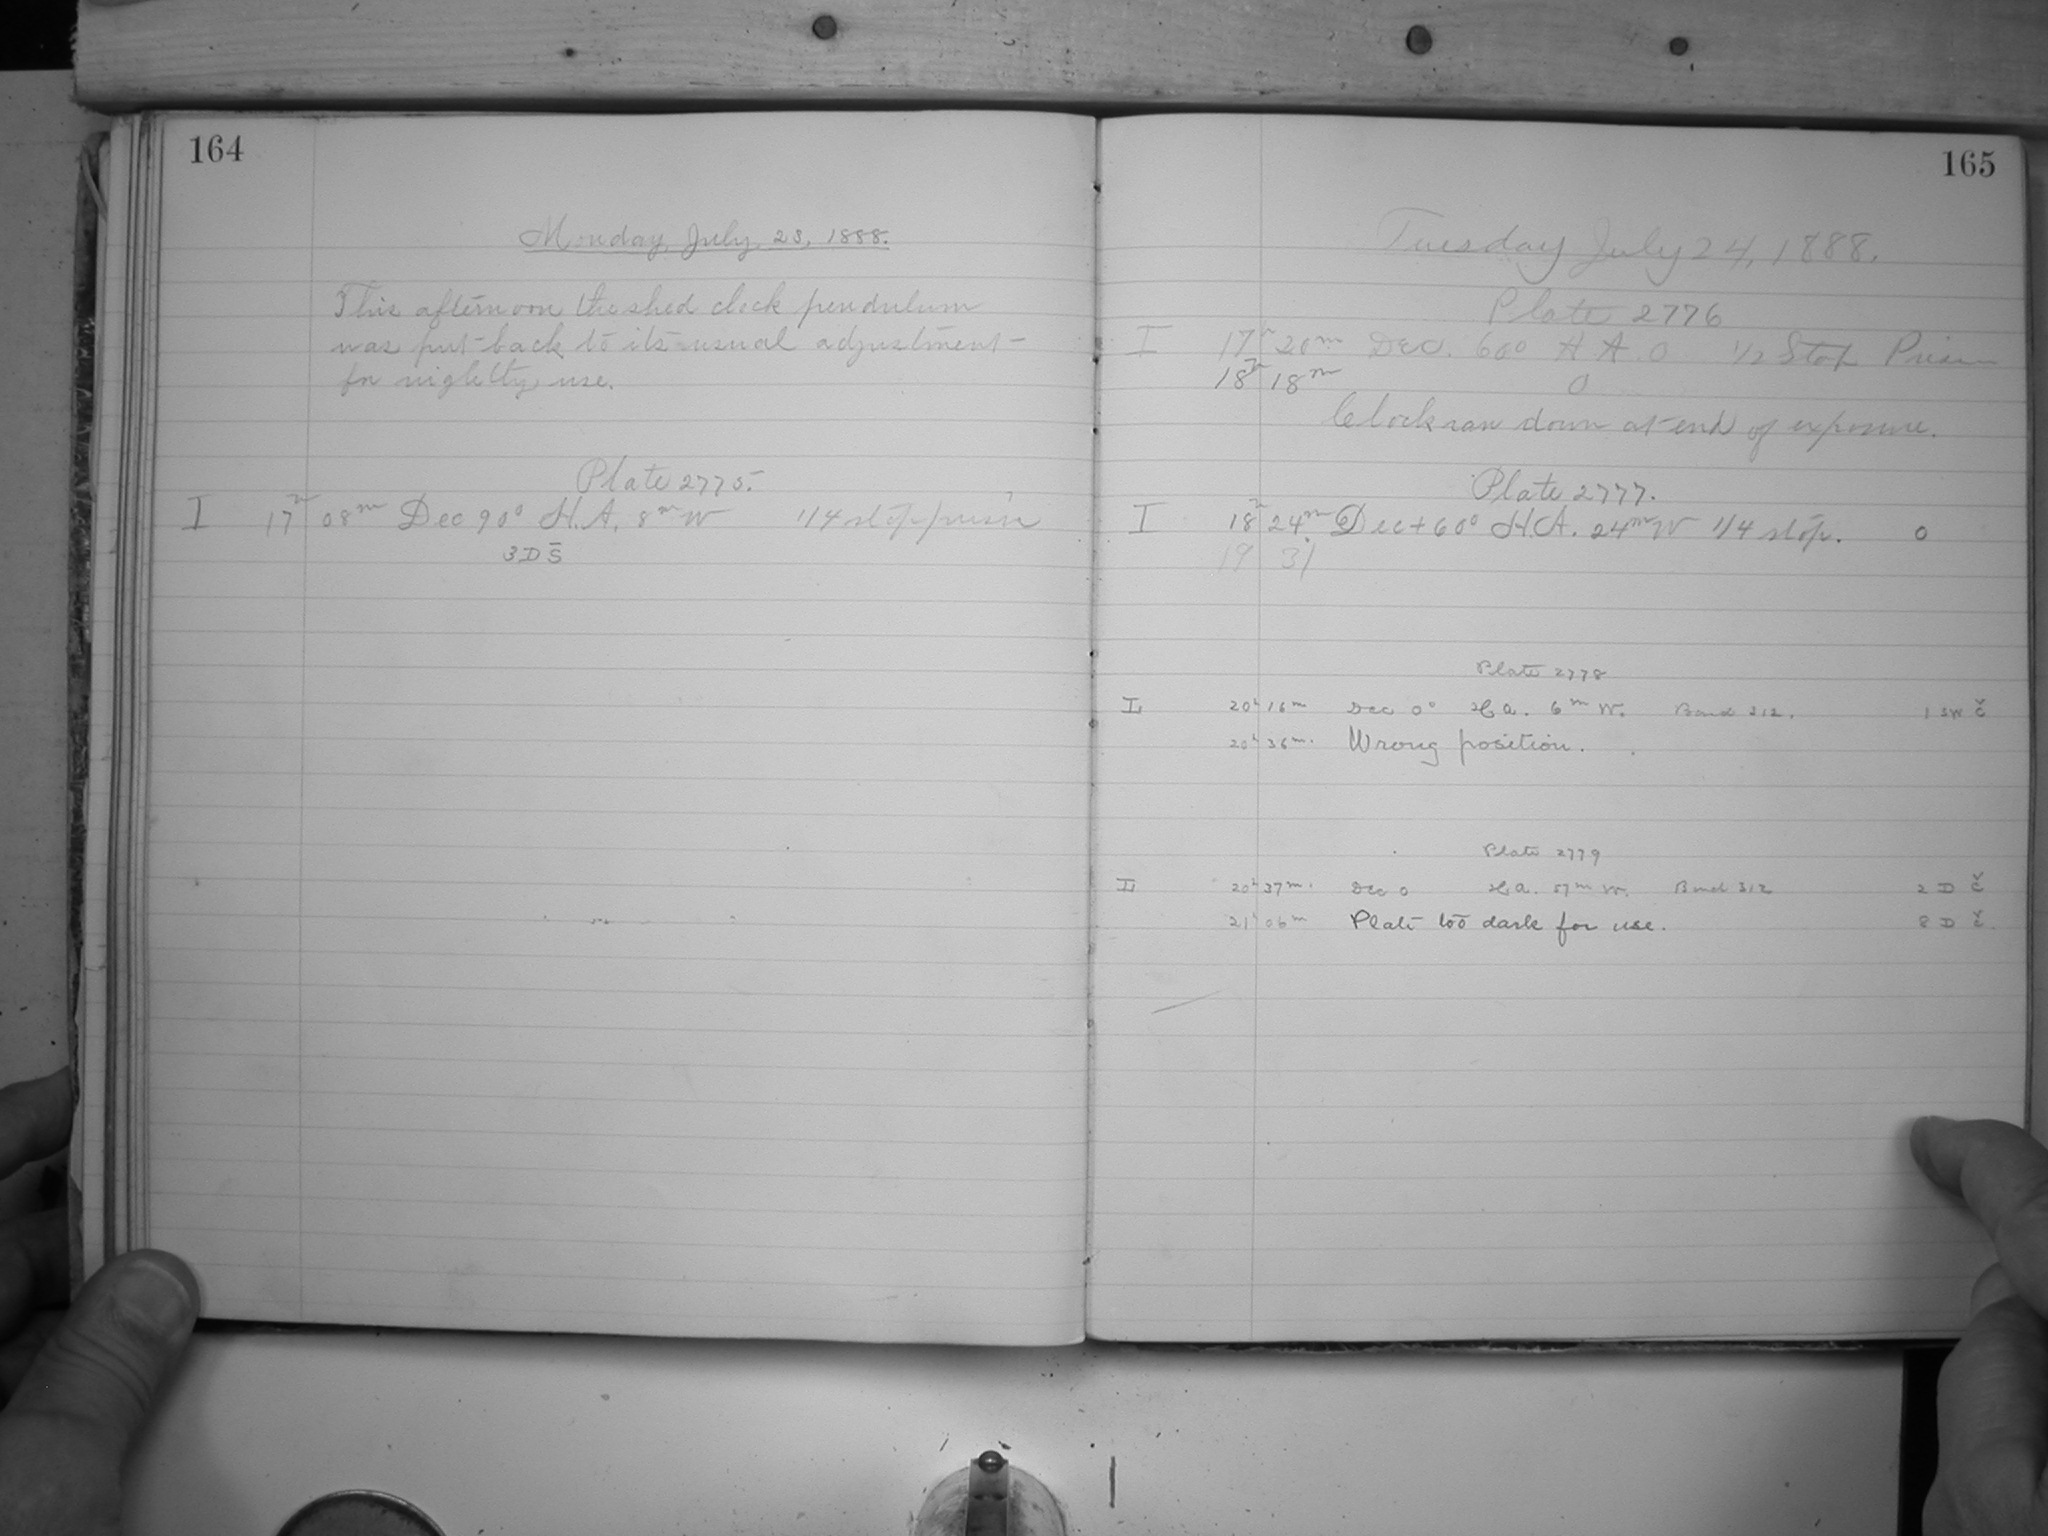 164
Monday, July 23, 1888.
This afternoon the shed clock pendulum
was put back to its usual adjustment
for nightly use.
Plate 2775.
I 17h 08m Dec 90° H.A. 8m W 1/4 stop prism
3 D S
165
Tuesday July 24, 1888.
Plate 2776
I 17h 20m Dec. 60° H A. 0 1/2 Stop Prism
18h 18m 0
Clock ran down at end of exposure.
Plate 2777.
I 18h 24m Dec + 60° H.A. 24m W 1/4 stop. 0
19 31
Plate 2778
I 20h 16m Dec 0° H a. 6m W. Bond 312. 1 SW č
20h 36m. Wrong position.
Plate 2779
I 20h 37m. Dec 0 H a. 57m W. Bond 312 2 D č
21h 06m Plate too dark for use. 8 D č.